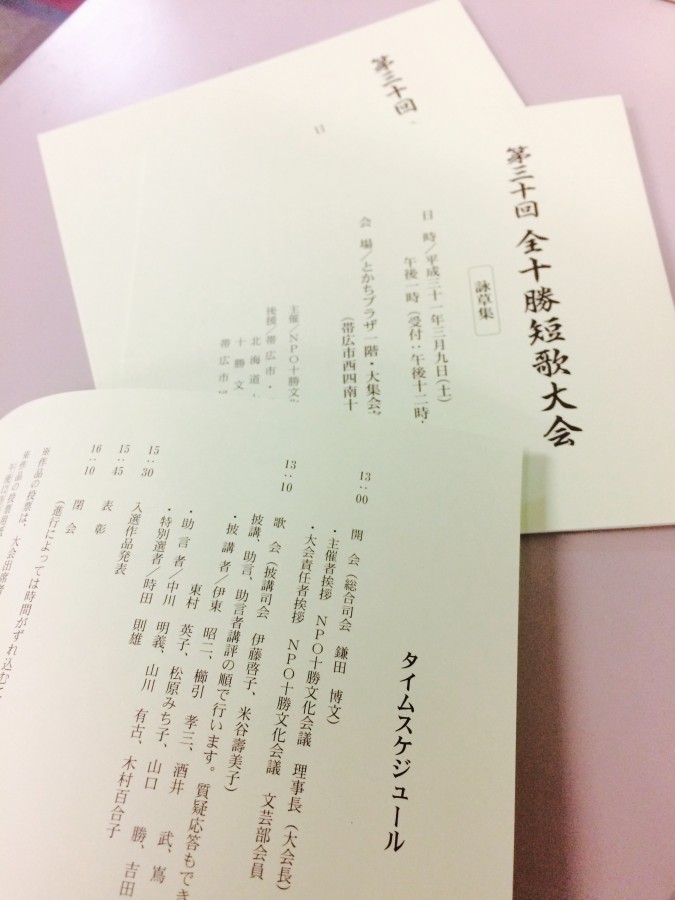 第三十回
第三十回 全十勝短歌大会
詠草集
日 時／平成三十一年三月九日(土)
午後一時 (受付：午後十二時・
会 場／とかちプラザ一階・大集会
(帯広市西四南十
主催／NPO十勝文
後援／帯広市・
北海道
十勝文
帯広市
タイムスケジュール
13：00 開 会 (総合司会 鎌田 博文)
・主催者挨拶 NPO十勝文化会議 理事長 (大会長)
・大会責任者挨拶 NPO十勝文化会議 文芸部会員
13：10 歌 会 (披講司会 伊藤啓子、米谷壽美子)
披講、助言、助言者講評の順で行います。質疑応答もでき
・披 講 者／伊東 昭二、櫛引 孝三、酒井 武、嶌
東村 英子、松原みち子、山口 勝、吉田
・助 言 者／中川 明義、山川 有古、木村百合子
・特別選者／時田 則雄
15：30 入選作品発表
15：45 表 彰
16：10 閉 会
(進行によっては時間がずれ込む
※作品の投票は、大会出席者
※作品の投票用紙